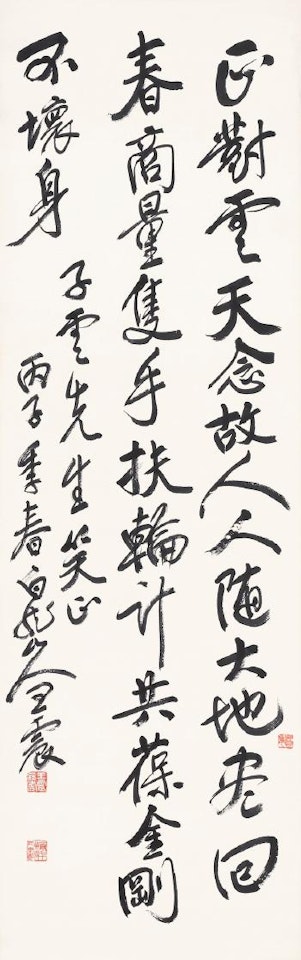 正對雲天念故人人隨大地盡回
春商量隻手扶輪計共葆金剛
不壞身
子雲先生笑正
丙子季春白龍山人王震